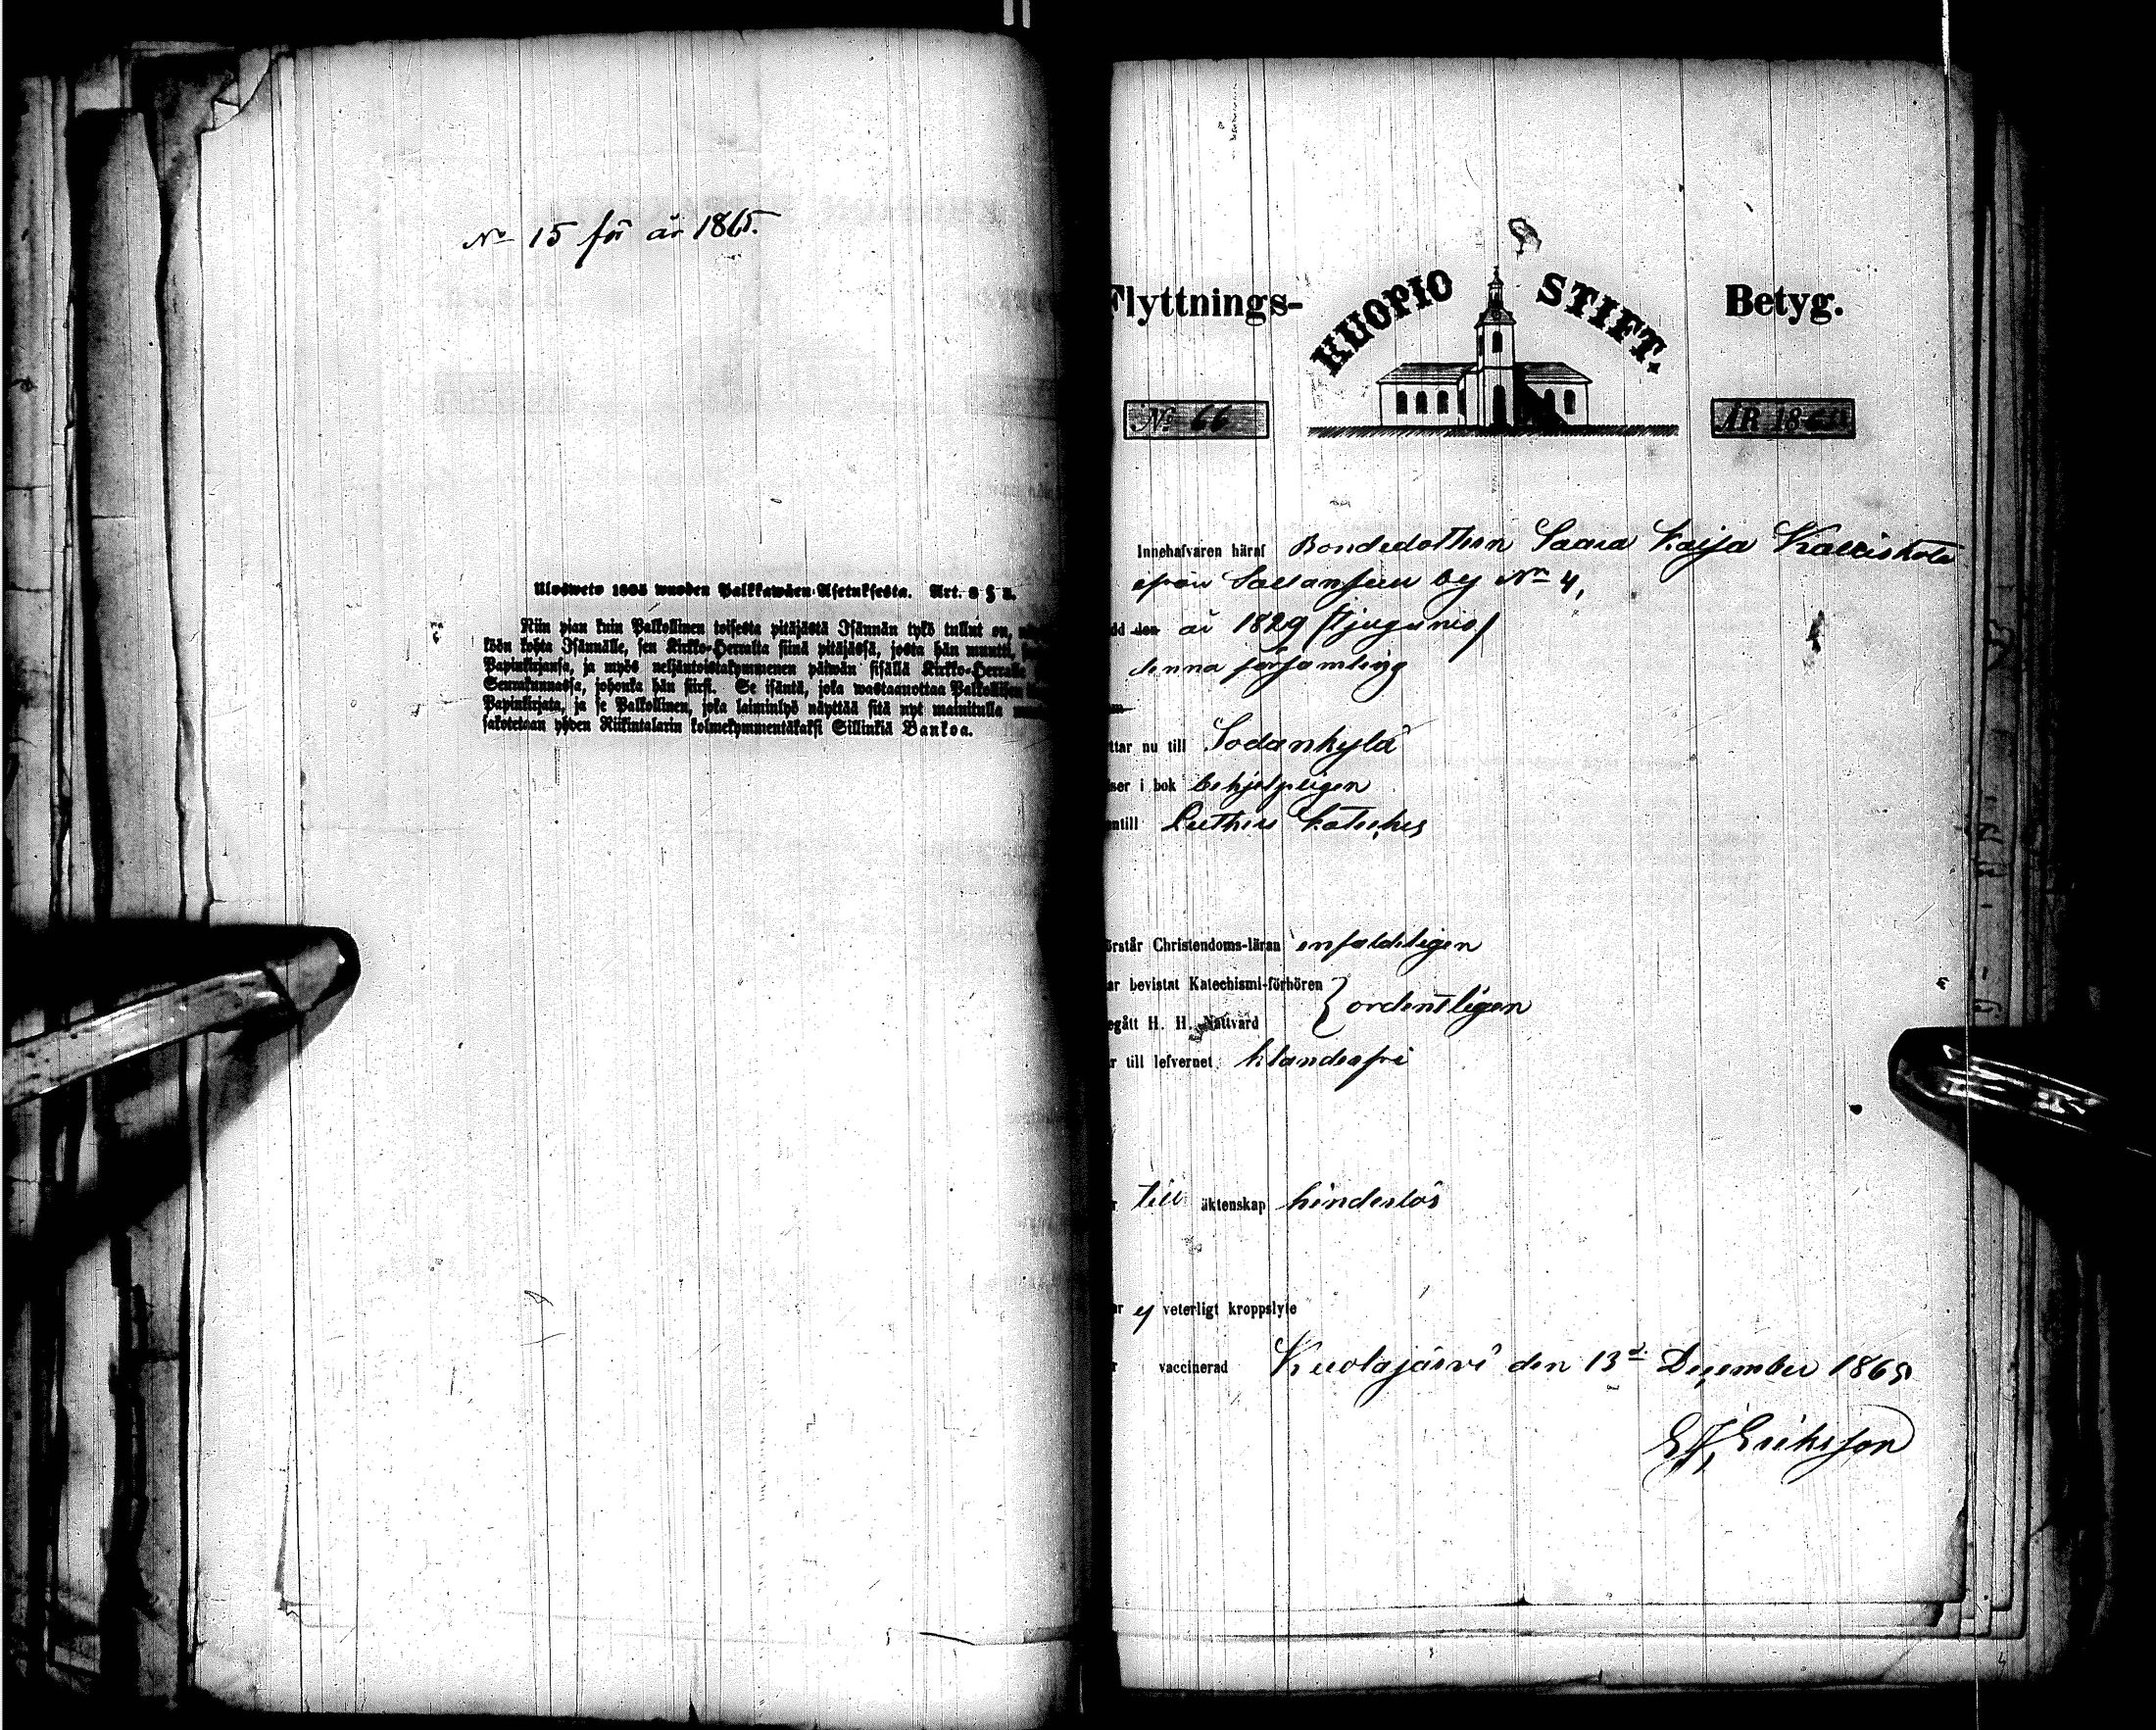 No 15 för år 1865.
Ulosweto 1805 wuoden Palkkawäen-Asetuksesta. Art. 8 § 3.
Niin pian kuin Palkollinen toisesta pitäjästä Isännän tykö tullut on,
köön kohta Isännälle, sen Kirkko-Herralta siinä pitäjässä, josta hän muutti,
Papinkirjansa, ja myös neljäntoistakymmenen päiwän sisällä Kirkko-Herralle
Seurakunnassa, johonka hän siirsi. Se isäntä, joka wastaanottaa Palkollisen
Papinkirjata, ja se Palkollinen, joka laiminlyö näyttää sitä nyt mainitulla
sakotetaan yhden Riikintalarin kolmekymmentäkaksi Sillinkiä Bankoa.
Flyttnings- KUOPIO STIFT. Betyg.
No 66 ÅR 18
Innehafvaren häraf Bondedottren Saara Kaija
ifrån Sallansuu by No 4,
dd den år 1829 /tjugunio/
denna församling
ttar nu till Sodankylä
ser i bok behjelpligen
antill Luthers Kateches
örstår Christendoms-läran enfaldeligen
ar bevistat Katechismi-förhören } ordentligen
egått H. H. Nattvard
r till lefvernet klanderfri
r till äktenskap hinderlös
ar ej veterligt kroppslyte
r vaccinerad Kuolajärvi den 13d December 1865
Eriksson